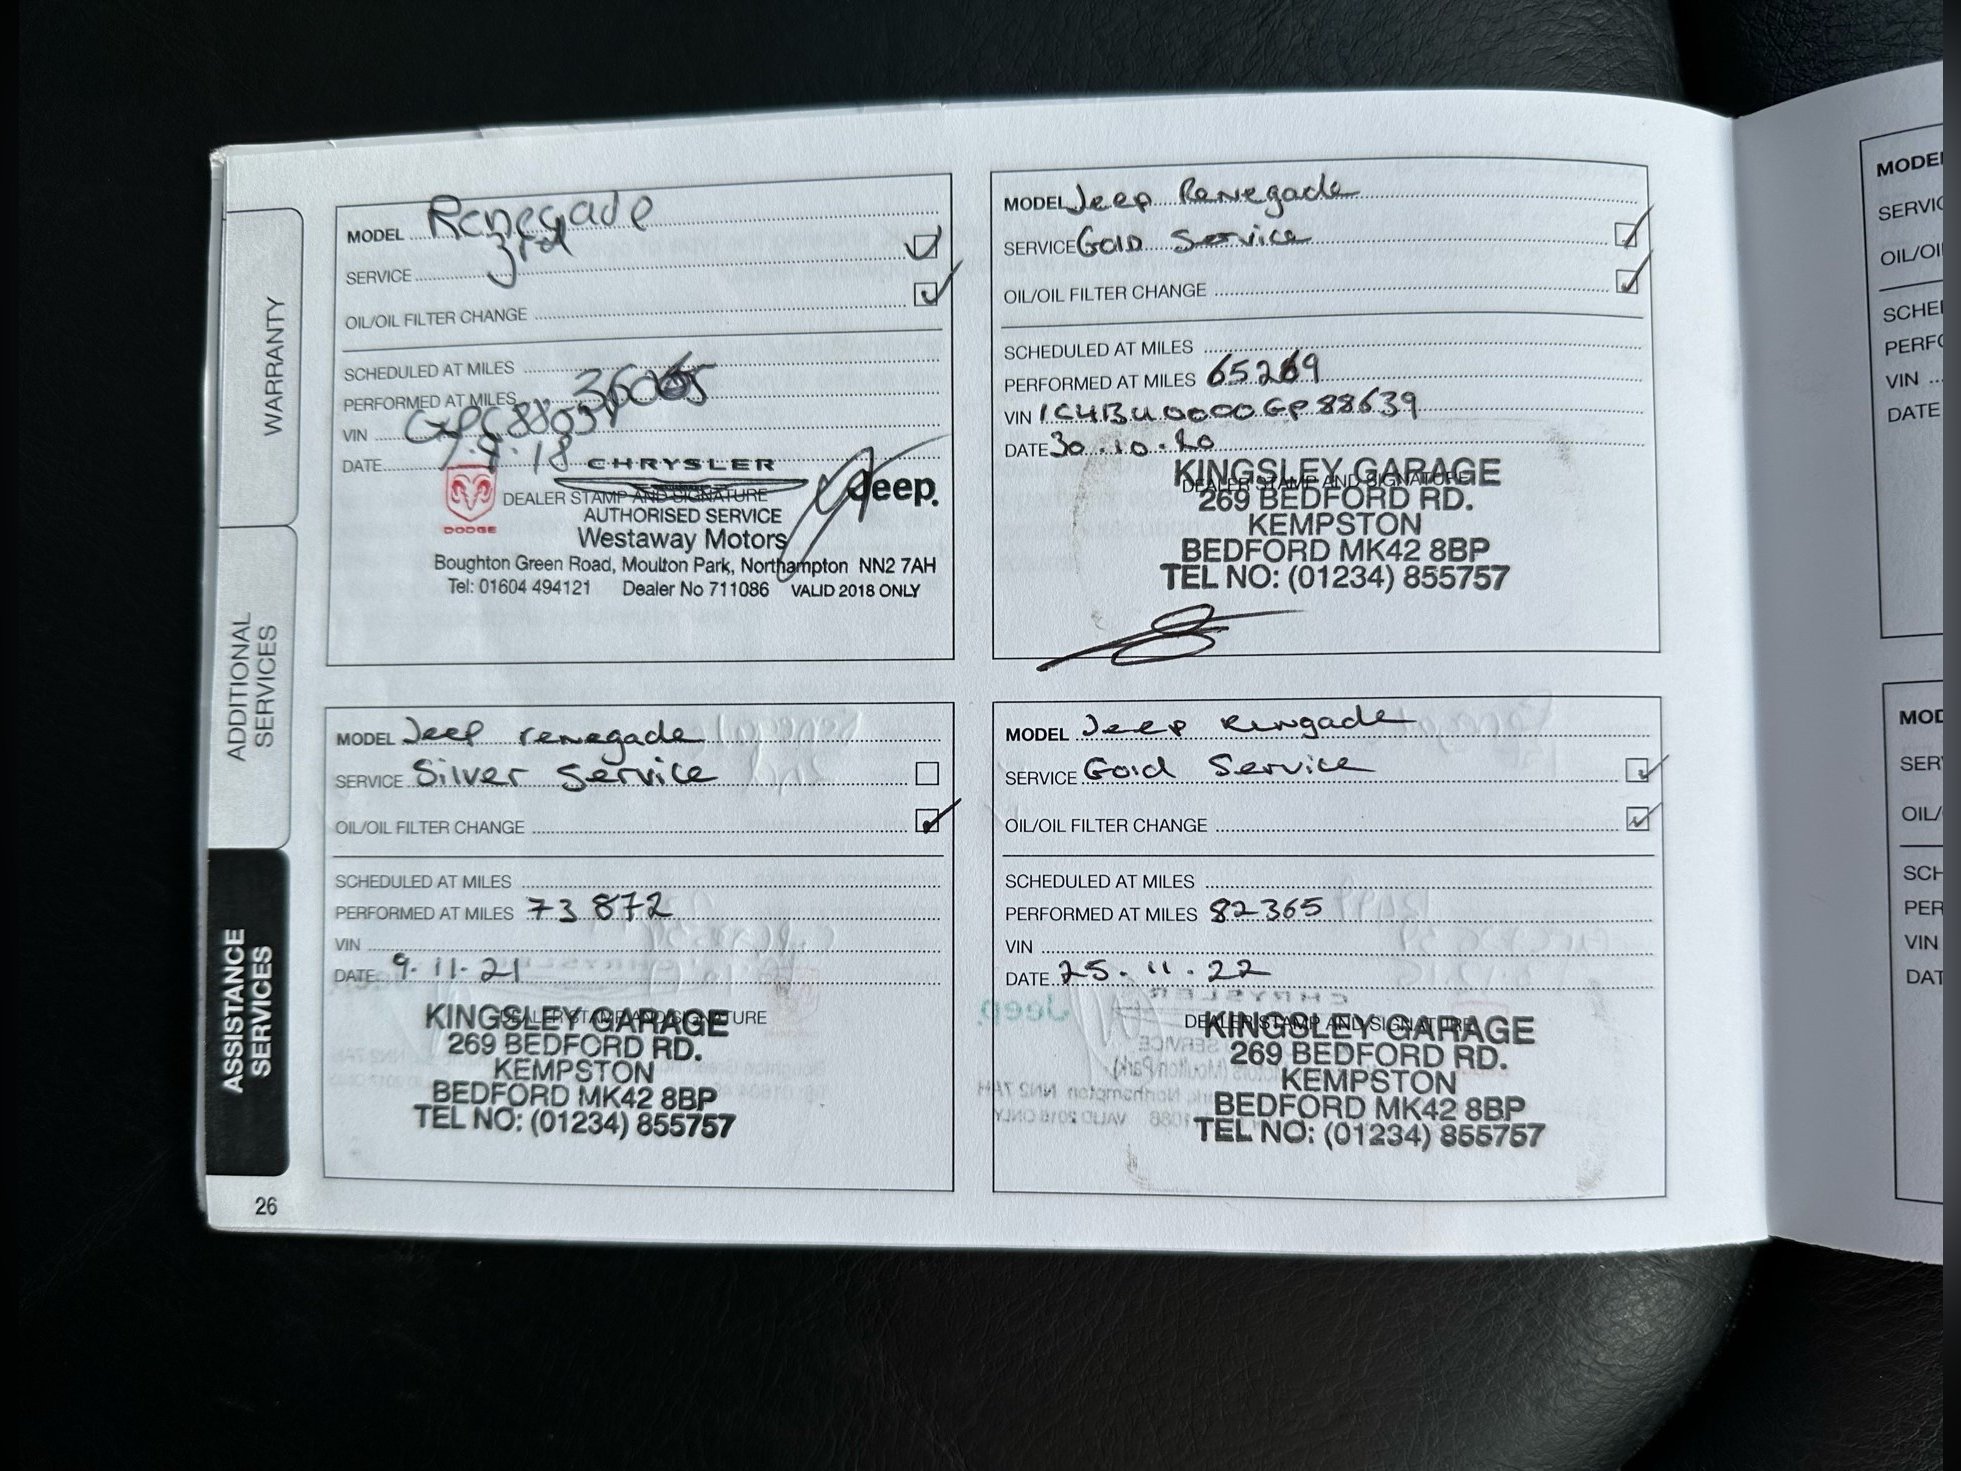 WARRANTY
ADDITIONAL
SERVICES
ASSISTANCE
SERVICES
26
MODEL Renegade
SERVICE 3rd
OIL/OIL FILTER CHANGE
SCHEDULED AT MILES
PERFORMED AT MILES
VIN
DATE
CHRYSLER
DODGE
Jeep.
DEALER STAMP AND SIGNATURE
AUTHORISED SERVICE
Westaway Motors
Boughton Green Road, Moulton Park, Northampton NN2 7AH
Tel: 01604 494121 Dealer No 711086 VALID 2018 ONLY
MODEL Jeep Renegade
SERVICE Gold Service
OIL/OIL FILTER CHANGE
SCHEDULED AT MILES
PERFORMED AT MILES 65269
VIN 1C4BU0000GP88639
DATE 30.10.20
DEALER STAMP AND SIGNATURE
KINGSLEY GARAGE
269 BEDFORD RD.
KEMPSTON
BEDFORD MK42 8BP
TEL NO: (01234) 855757
MODEL Jeep renegade
SERVICE Silver Service
OIL/OIL FILTER CHANGE
SCHEDULED AT MILES
PERFORMED AT MILES 73872
VIN
DATE 9.11.21
DEALER STAMP AND SIGNATURE
KINGSLEY GARAGE
269 BEDFORD RD.
KEMPSTON
BEDFORD MK42 8BP
TEL NO: (01234) 855757
MODEL Jeep Renegade
SERVICE Gold Service
OIL/OIL FILTER CHANGE
SCHEDULED AT MILES
PERFORMED AT MILES 82365
VIN
DATE 25.11.22
DEALER STAMP AND SIGNATURE
KINGSLEY GARAGE
269 BEDFORD RD.
KEMPSTON
BEDFORD MK42 8BP
TEL NO: (01234) 855757
VIN
DATE
VIN